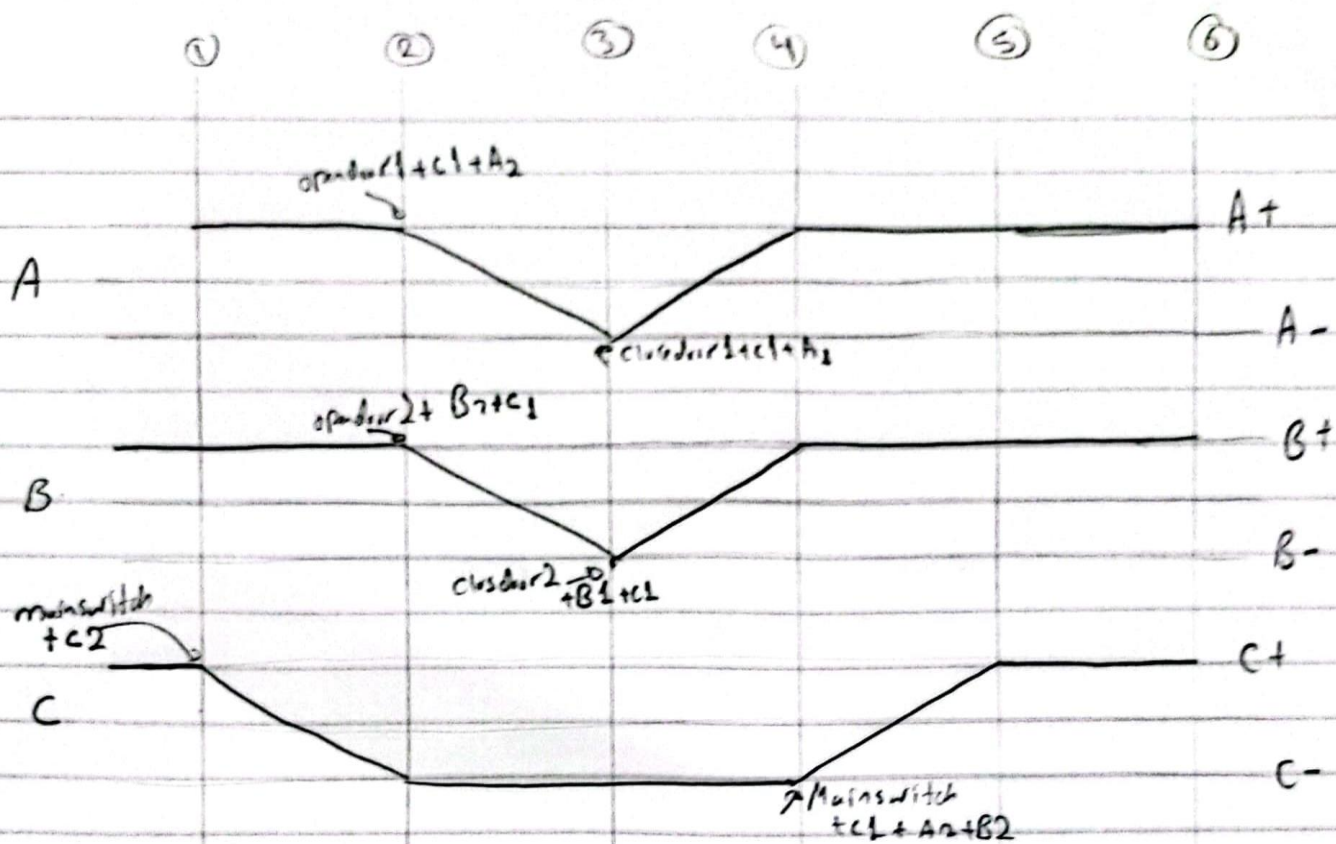 ① ② ③ ④ ⑤ ⑥
opendoor1+c1+A2
A+
A
A-
closedoor1+c1+A1
opendoor2+ B2+c1
B+
B
B-
closdoor2
+B1+c1
mainswitch
+c2
C+
C
C-
Mainswitch
+c1+A2+B2